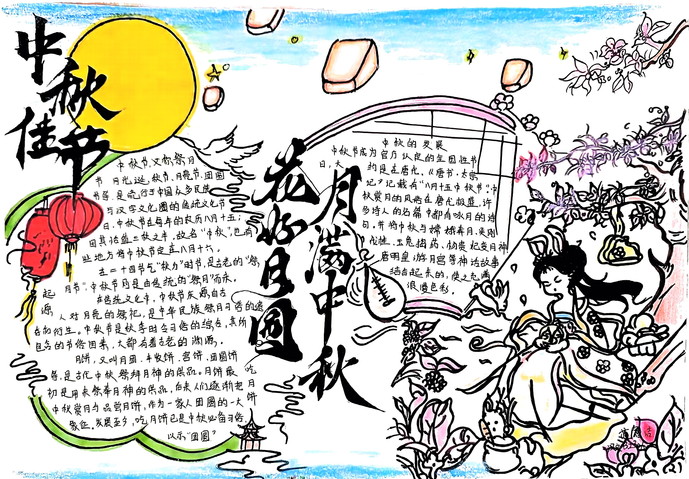 中秋佳节
中秋节,又称祭月
节、月光诞、秋节、月亮节、团圆
节等,是流行于中国众多民族
与汉字文化圈的传统文化节
日,中秋节在每年的农历八月十五;
因其恰值三秋之半,故名“中秋”,也有
些地方将中秋节定在八月十六。
在二十四节气“秋分”时节,是古老的“祭
月节”,中秋节则是由传统的“祭月”而来。
在传统文化中,中秋节
起源
人对月亮的祭祀,是中华民族祭月习俗的遗
存和衍生。中秋节是秋季时令习俗的综合,其所
包含的节俗因素,大都有着古老的渊源。
月饼,又叫月团、丰收饼、宫饼、团圆饼
等,是古代中秋祭拜月神的供品。月饼最
初是用来祭奉月神的供品,后来人们逐渐把
中秋赏月与品尝月饼,作为一家人团圆的一大
象征,发展至今,吃月饼已是中秋必备习俗,
以示“团圆”
花好月圆
月满中秋
中秋的发展
中秋节成为官方认定的全国性节
日,大约是在唐代。《唐书·太宗
记》记载有“八月十五中秋节”。中
秋赏月风俗在唐代极盛,许
多诗人的名篇中都有咏月的诗
句,并将中秋与嫦娥奔月、吴刚
伐桂、玉兔捣药、杨贵妃变月神
唐明皇游月宫等神话故事
结合起来的,使之充满
浪漫色彩。